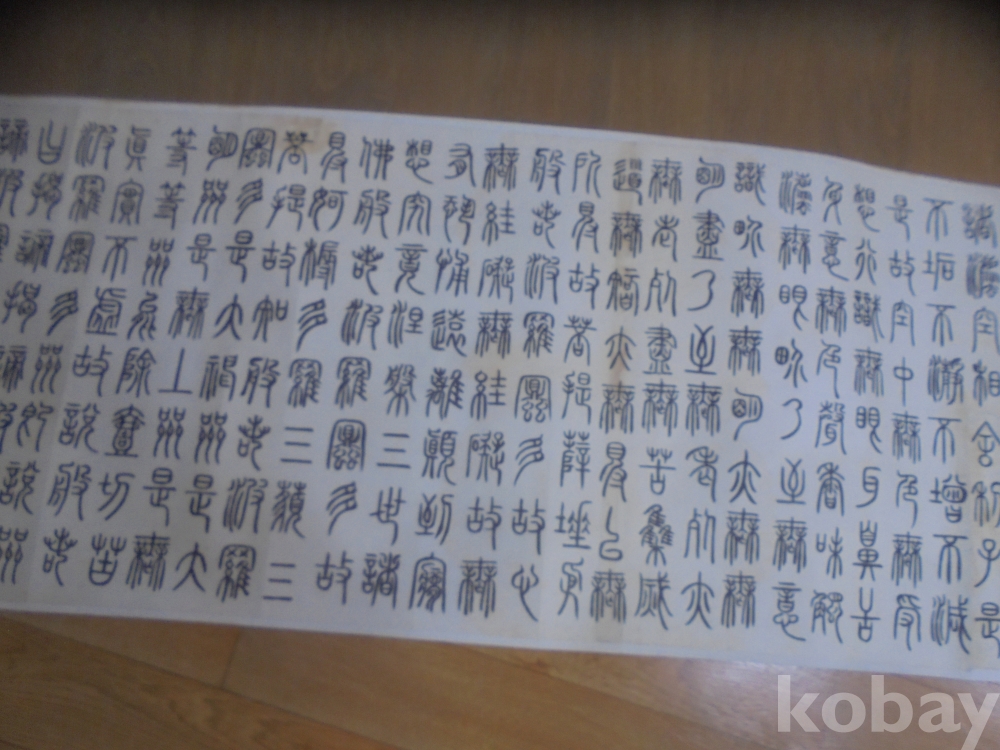 諸法空相舍利子是
不垢不淨不增不減
是故空中無色無受
想行識無眼耳鼻舌
身意無色聲香味觸
法無眼界乃至無意
識界無無明亦無無
明盡乃至無老死亦
無老死盡無苦集滅
道無智亦無得以無
所得故菩提薩埵依
般若波羅蜜多故心
無罣礙無罣礙故無
有恐怖遠離顛倒夢
想究竟涅槃三世諸
佛般若波羅蜜多故
得阿耨多羅三藐三
菩提故知般若波羅
蜜多是大神咒是大
明咒是無上咒是無
等等咒能除一切苦
真實不虛故說般若
波羅蜜多咒即說咒
曰揭諦揭諦般
諦波羅
kobay